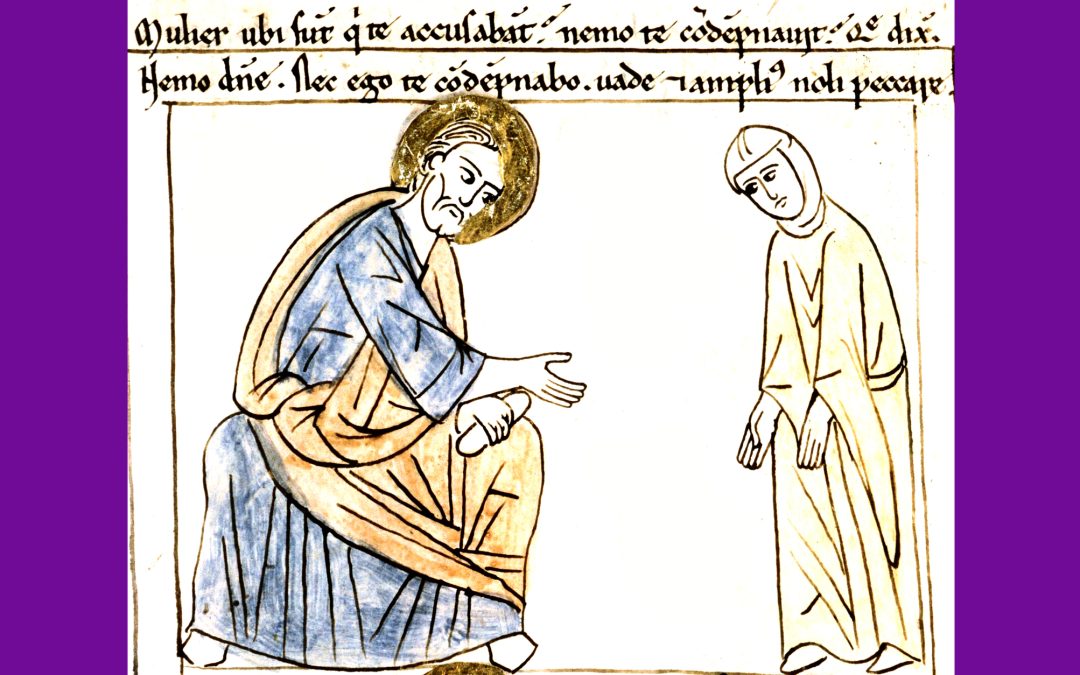 Mulier ubi sūt qͥ te accusabāt? nemo te cōdēpnauit? Q̄e dix̄.
Nemo dn̄e. Nec ego te cōdēpnabo. uade ⁊ ampliꝰ noli peccare.